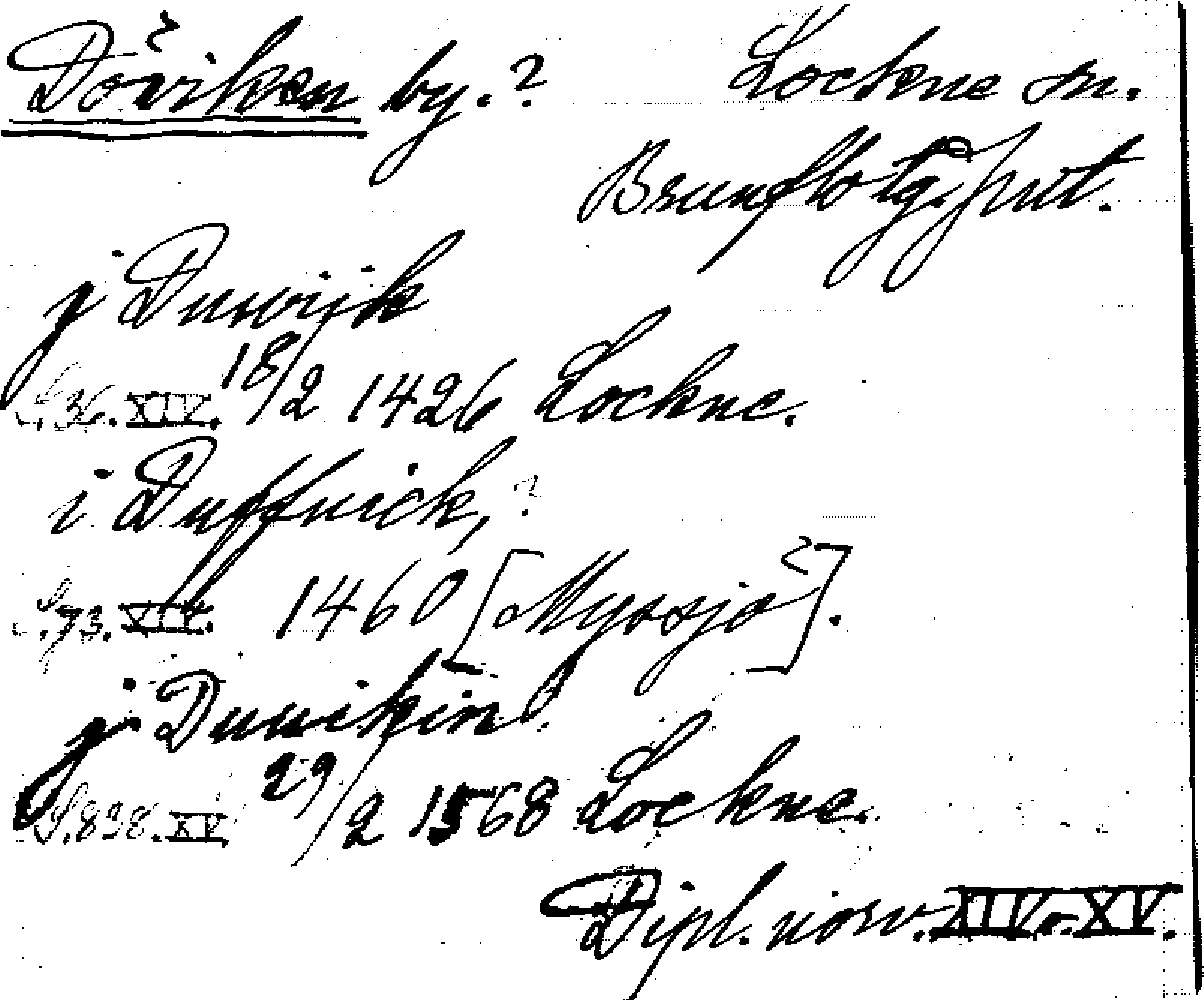 Döviken by.? Lockne sn.
Brunflo tg. Jmt.
j Duwijk
S.36. XIV. 18/2 1426 Lockne.
i Duffuick, ?
S.73. XIV. 1460 [Myssjö].
j Duuikin
S.838. XV 29/2 1568 Lockne.
Dipl. norv. XIV o. XV.